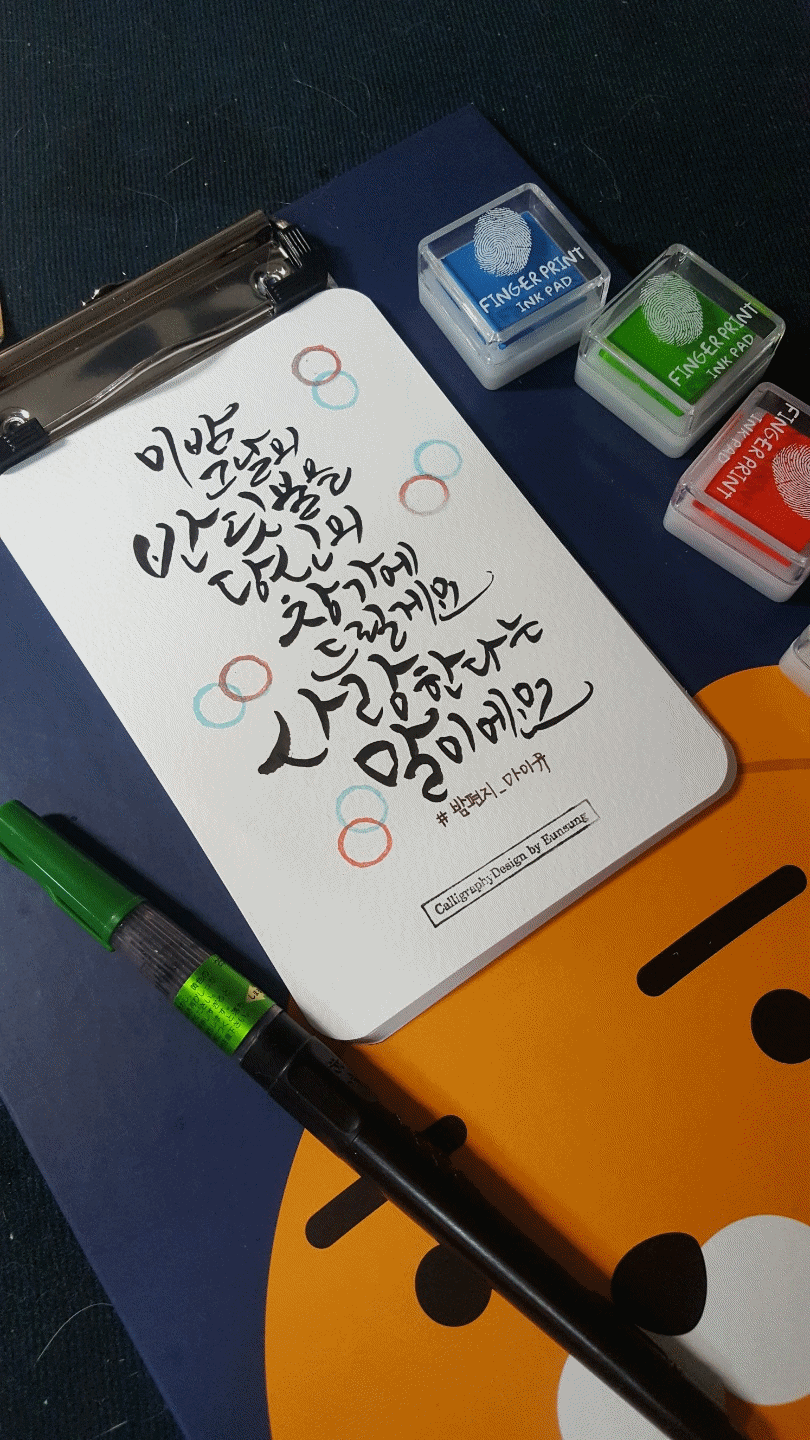 이밤
그날의
반딧불을
당신의
창가에
드릴게요
사랑한다는
말이에요
#밤편지_아이유
CalligraphyDesign by Eunsung
FINGER PRINT
INK PAD
FINGER PRINT
INK PAD
FINGER PRINT
INK PAD